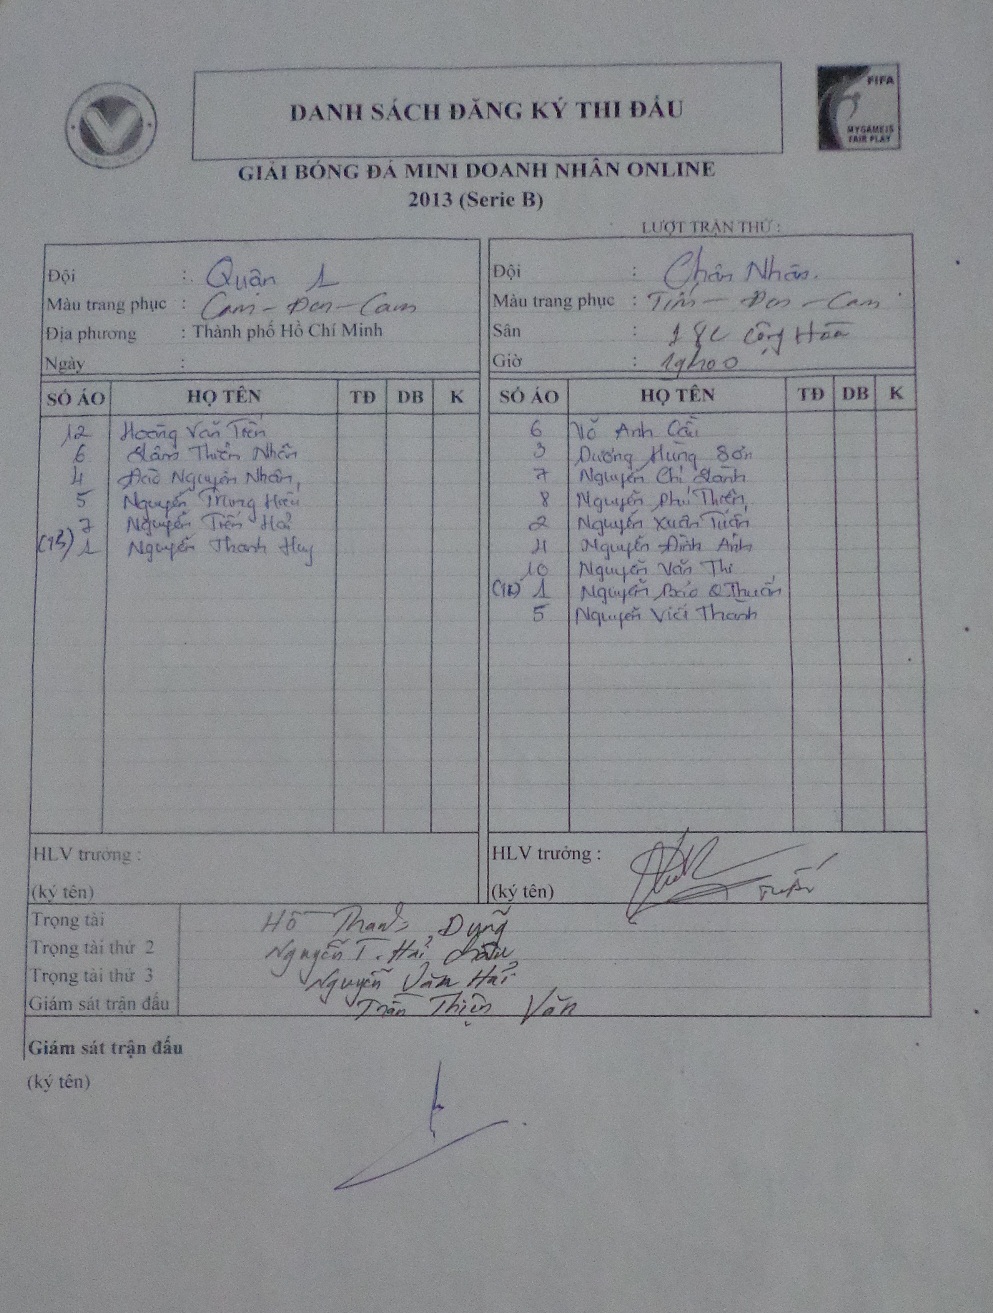 DANH SÁCH ĐĂNG KÝ THI ĐẤU
FIFA
MY GAME IS
FAIR PLAY
GIẢI BÓNG ĐÁ MINI DOANH NHÂN ONLINE
2013 (Serie B)
LƯỢT TRẬN THỨ :
Đội : Quận 1
Màu trang phục : Cam - Đen - Cam
Địa phương : Thành phố Hồ Chí Minh
Ngày :
Đội : Chân Nhân.
Màu trang phục : Tím - Đen - Cam
Sân : Cộng Hòa
Giờ : 19h00
SỐ ÁO HỌ TÊN TĐ DB K
12 Hoàng Văn Tiến
6 Lâm Thiên Nhân
4 Đào Nguyên Nhân,
5 Nguyễn Trung Hiếu
7 Nguyễn Tiến Hải
1 Nguyễn Thanh Huy
SỐ ÁO HỌ TÊN TĐ DB K
6 Võ Anh Cầu
3 Dương Hùng Sơn
7 Nguyễn Chí
8 Nguyễn Phú Thiên,
2 Nguyễn Xuân Tuấn
Nguyễn Đình Ánh
10 Nguyễn Văn Thi
1 Nguyễn Bảo Q Thuấn
5 Nguyễn Viết Thành
HLV trưởng :
(ký tên)
HLV trưởng :
(ký tên) Tuấn
Trọng tài Hồ Thanh Dũng
Trọng tài thứ 2 Nguyễn T. Hải Châu
Trọng tài thứ 3 Nguyễn Văn Hải
Giám sát trận đấu Trần Thiện Văn
Giám sát trận đấu
(ký tên)